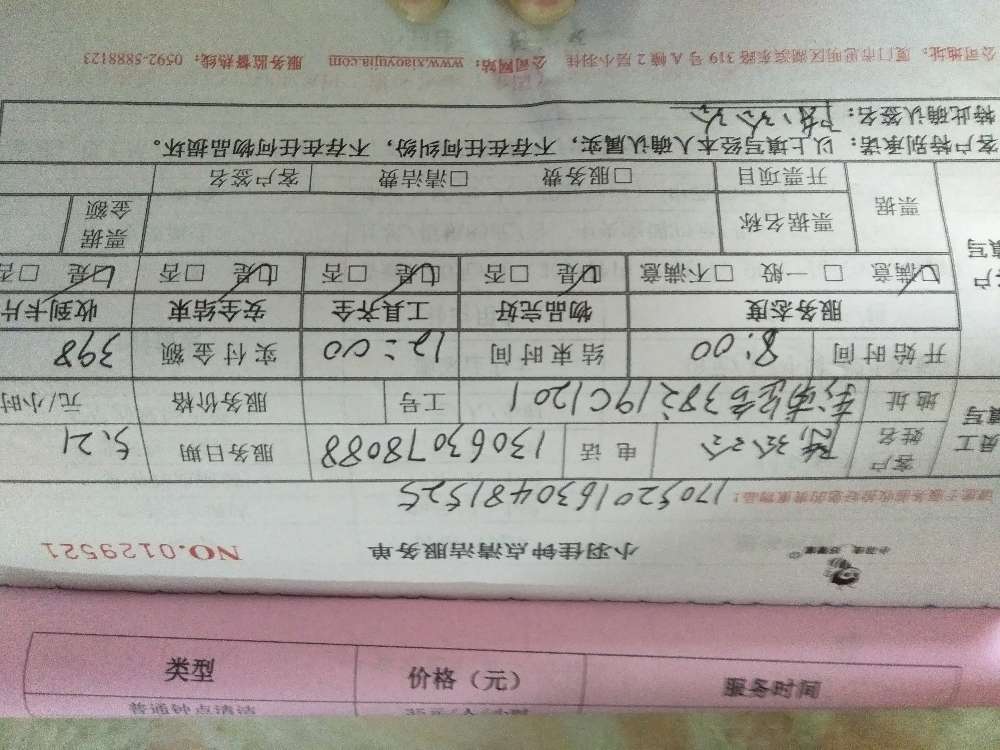 小羽佳钟点清洁服务单 NO.0129521
请您于服务前收拾好您的贵重物品! 1705201630481525
员工填写 客户姓名 电话 13063078088 服务日期 5.21
地址 工号 服务价格 元/小时
开始时间 8:00 结束时间 12:00 实付金额 398
服务态度 物品完好 工具齐全 安全结束 收到卡片
客户填写 满意 一般 不满意 是 否 是 否 是 否 是 否
票据 票据名称 票据金额
开票项目 服务费 清洁费 客户签名
客户特别承诺:以上填写经本人确认属实,不存在任何纠纷,不存在任何物品损坏。
特此确认签名:
公司地址:厦门市思明区湖滨东路319号A幢2层小羽佳 公司网站:www.xiaoyujia.com 服务监督热线:0592-5888123
类型 价格(元) 服务时间
普通钟点清洁